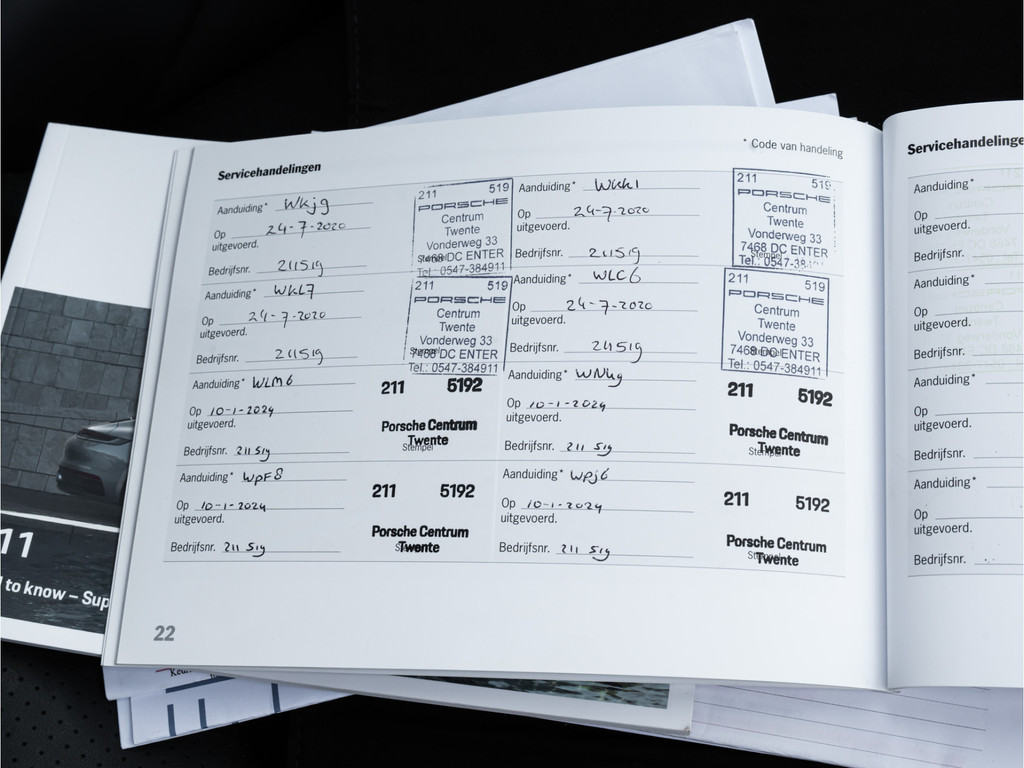 Servicehandelingen
* Code van handeling
Aanduiding* Wkjg
Op 24-7-2020
uitgevoerd.
Bedrijfsnr. 211519
211 519
PORSCHE
Centrum
Twente
Vonderweg 33
7468 DC ENTER
Stempel
Tel.: 0547-384911
Aanduiding* Wkk1
Op 24-7-2020
uitgevoerd.
Bedrijfsnr. 211519
211 519
PORSCHE
Centrum
Twente
Vonderweg 33
7468 DC ENTER
Stempel
Tel.: 0547-384911
Aanduiding* WKL7
Op 24-7-2020
uitgevoerd.
Bedrijfsnr. 211519
211 519
PORSCHE
Centrum
Twente
Vonderweg 33
7468 DC ENTER
Stempel
Tel.: 0547-384911
Aanduiding* WLC6
Op 24-7-2020
uitgevoerd.
Bedrijfsnr. 211519
211 519
PORSCHE
Centrum
Twente
Vonderweg 33
7468 DC ENTER
Stempel
Tel.: 0547-384911
Aanduiding* WLM6
Op 10-1-2024
uitgevoerd.
Bedrijfsnr. 211 519
211 5192
Porsche Centrum
Twente
Stempel
Aanduiding* WNkg
Op 10-1-2024
uitgevoerd.
Bedrijfsnr. 211 519
211 5192
Porsche Centrum
Twente
Stempel
Aanduiding* WpF8
Op 10-1-2024
uitgevoerd.
Bedrijfsnr. 211 519
211 5192
Porsche Centrum
Twente
Stempel
Aanduiding* Wpj6
Op 10-1-2024
uitgevoerd.
Bedrijfsnr. 211 519
211 5192
Porsche Centrum
Twente
Stempel
22
Servicehandelinge
Aanduiding*
Op
uitgevoerd.
Bedrijfsnr.
Aanduiding*
Op
uitgevoerd.
Bedrijfsnr.
Aanduiding*
Op
uitgevoerd.
Bedrijfsnr.
Aanduiding*
Op
uitgevoerd.
Bedrijfsnr.
11
to know – Sup